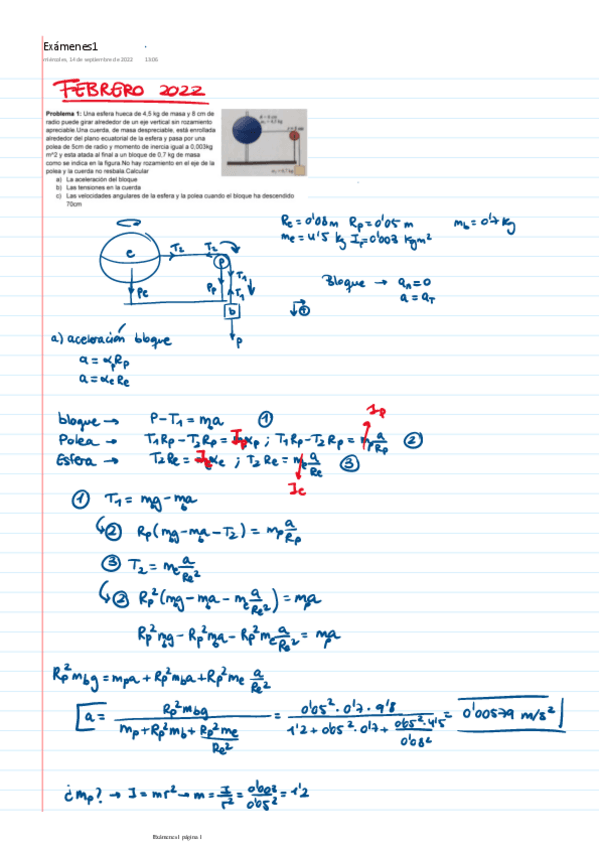 Exámenes1
miércoles, 14 de septiembre de 2022 13:06
FEBRERO 2022
Problema 1: Una esfera hueca de 4,5 kg de masa y 8 cm de
radio puede girar alrededor de un eje vertical sin rozamiento
apreciable.Una cuerda, de masa despreciable, está enrollada
alrededor del plano ecuatorial de la esfera y pasa por una
polea de 5cm de radio y momento de inercia igual a 0,003kg
m^2 y esta atada al final a un bloque de 0,7 kg de masa
como se indica en la figura.No hay rozamiento en el eje de la
polea y la cuerda no resbala.Calcular
a) La aceleración del bloque
b) Las tensiones en la cuerda
c) Las velocidades angulares de la esfera y la polea cuando el bloque ha descendido
70cm
Re = 0'08m Rp = 0'05 m mb = 0'7 Kg
me = 4'5 kg Ip = 0'003 kgm²
e T2 T2 P
Pe Pp T1 T1
b
P
Bloque → an = 0
a = aT
a) aceleración bloque
a = αp Rp
a = αe Re
bloque → P - T1 = mba ①
Ip
Polea → T1Rp - T2Rp = Ip αp ; T1Rp - T2Rp = mp a/Rp ②
Esfera → T2Re = Ie αe ; T2Re = me a/Re ③
Ie
① T1 = mbg - mba
② Rp(mbg - mba - T2) = mp a/Rp
③ T2 = me a/Re²
② Rp²(mbg - mba - me a/Re²) = mpa
Rp²mbg - Rp²mba - Rp²me a/Re² = mpa
Rp²mbg = mpa + Rp²mba + Rp²me a/Re²
a = Rp²mbg / (mp + Rp²mb + Rp²me/Re²) = 0'05²·0'7·9'8 / (1'2 + 0'05²·0'7 + 0'05²·4'5/0'08²) = 0'00579 m/s²
¿mp? → I = mr² → m = I/r² = 0'003/0'05² = 1'2
Exámenes1 página 1